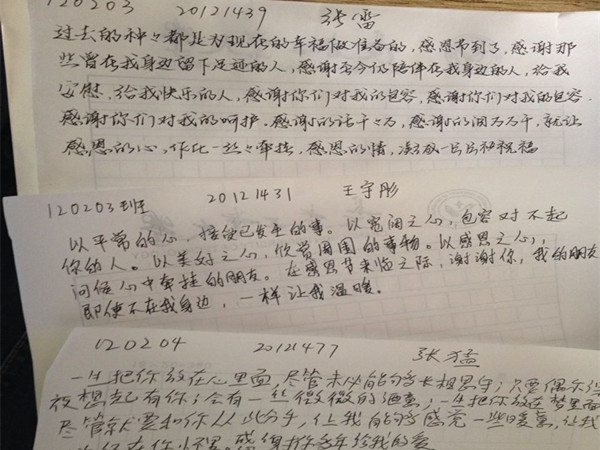 120203 20121439 张雷
过去的种々都是为现在的幸福做准备的,感恩节到了,感谢那
些曾在我身边留下足迹的人,感谢至今仍陪伴在我身边的人,给我
安慰,给我快乐的人,感谢你们对我的包容,感谢你们对我的包容.
感谢你们对我的呵护.感谢的话千々万,感谢的泪万万千,就让
感恩的心,化作一丝々牵挂,感恩的情,凝成一句句祝福
120203班 20121431 王宇彤
以平常的心,接受已发生的事。以宽阔之心,包容对不起
你的人。以美好之心,欣赏周围的事物。以感恩之心,
问候心中牵挂的朋友。在感恩节来临之际,谢谢你,我的朋友
即使不在我身边,一样让我温暖。
120204 20121477 张猛
一生把你放在心里面,尽管未必能够长相厮守;只要偶尔
夜想起有你;会有一丝微微的酒意;一生把你放在梦里面
尽管就要和你从此分手,让我能够感觉一些暖意,让我
感得你多年给我的爱